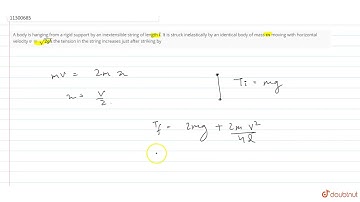 11300685
A body is hanging from a rigid support by an inextensible string of length l. It is struck inelastically by an identical body of mass m moving with horizontal
velocity v = √2gl the tension in the string increases just after striking by
mv = 2m x
x = v/2
T_i = mg
T_f = 2mg + 2m v²/4l
doubtnut